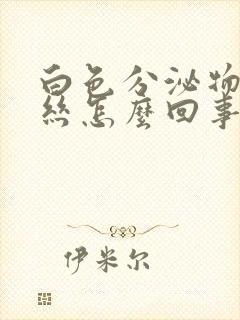 白色分泌物
丝怎么回事
伊米尔